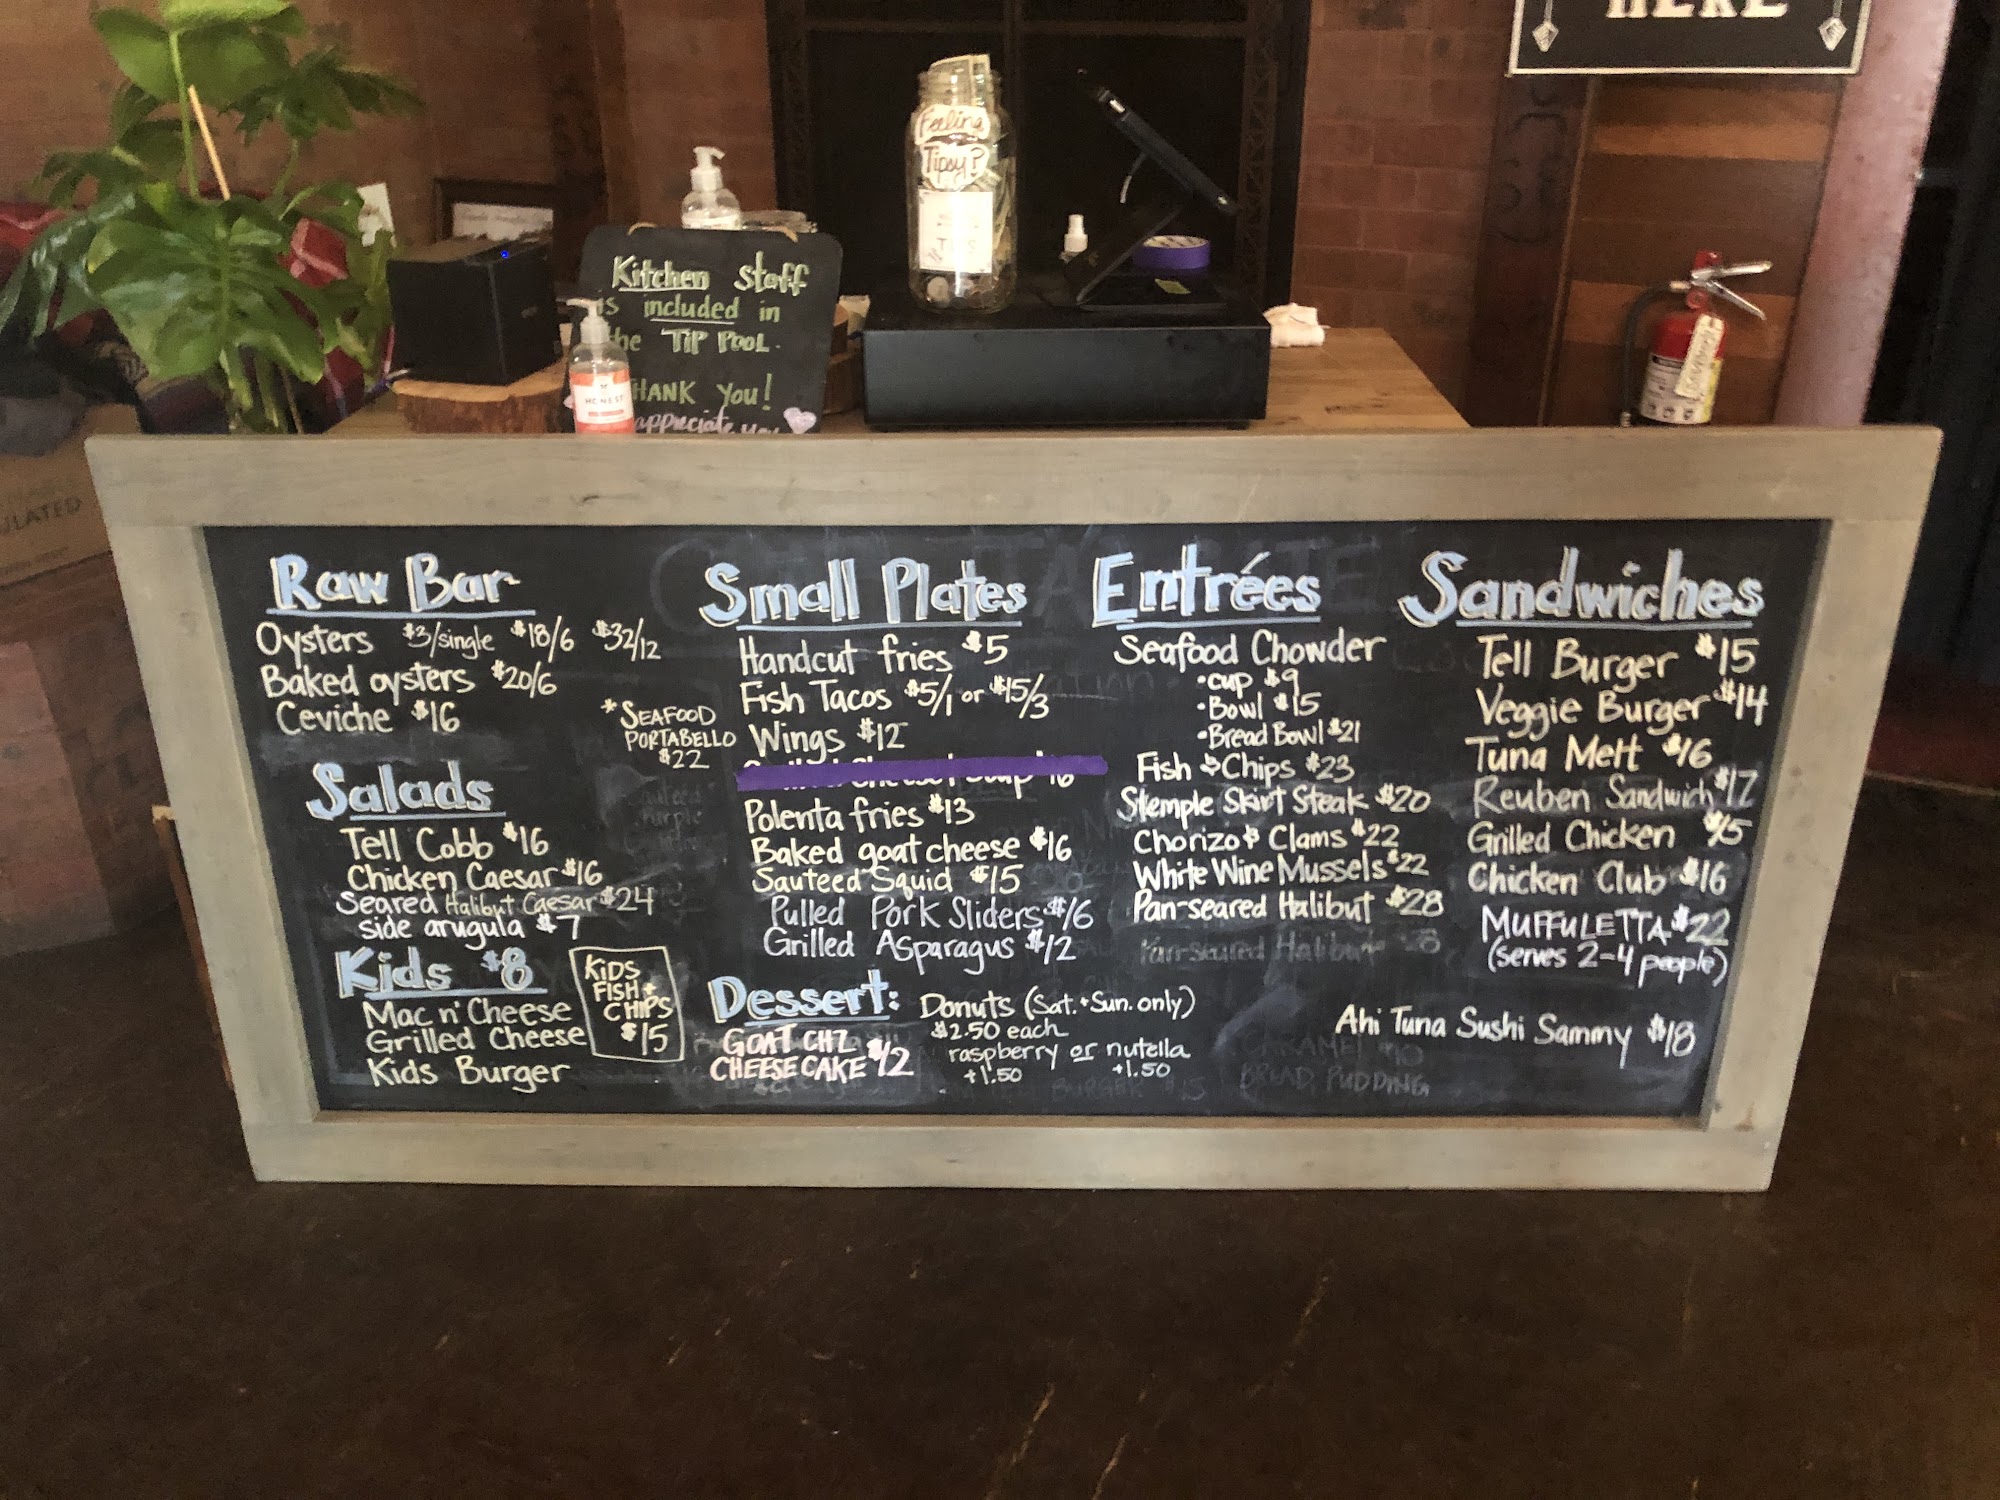 HERE
Feeling
Tipsy?
TIPS
Kitchen Staff
is included in
the TIP POOL.
THANK YOU!
appreciate you
HONEST
ULATED
Raw Bar
Oysters $3/single $18/6 $32/12
Baked oysters $20/6
Ceviche $16
* SEAFOOD
PORTABELLO
$22
Salads
Tell Cobb $16
Chicken Caesar $16
Seared Halibut Caesar $24
side arugula $7
Kids $8
Mac n' Cheese
Grilled Cheese
Kids Burger
KiDS
FISH +
CHIPS
$15
Small Plates
Handcut fries $5
Fish Tacos $5/1 or $15/3
Wings $12
Polenta fries $13
Baked goat cheese $16
Sauteed Squid $15
Pulled Pork Sliders $16
Grilled Asparagus $12
Dessert:
GOAT CHZ
CHEESECAKE $12
Donuts (Sat. + Sun. only)
$2.50 each
raspberry or nutella
+1.50 +1.50
Entrées
Seafood Chowder
• cup $9
• Bowl $15
• Bread Bowl $21
Fish & Chips $23
Stemple Skirt Steak $20
Chorizo & Clams $22
White Wine Mussels $22
Pan-seared Halibut $28
Pan-seared Halibut
CARAMEL
BREAD PUDDING
BURGER $15
Sandwiches
Tell Burger $15
Veggie Burger $14
Tuna Melt $16
Reuben Sandwich $17
Grilled Chicken $15
Chicken Club $16
MUFFULETTA $22
(serves 2-4 people)
Ahi Tuna Sushi Sammy $18